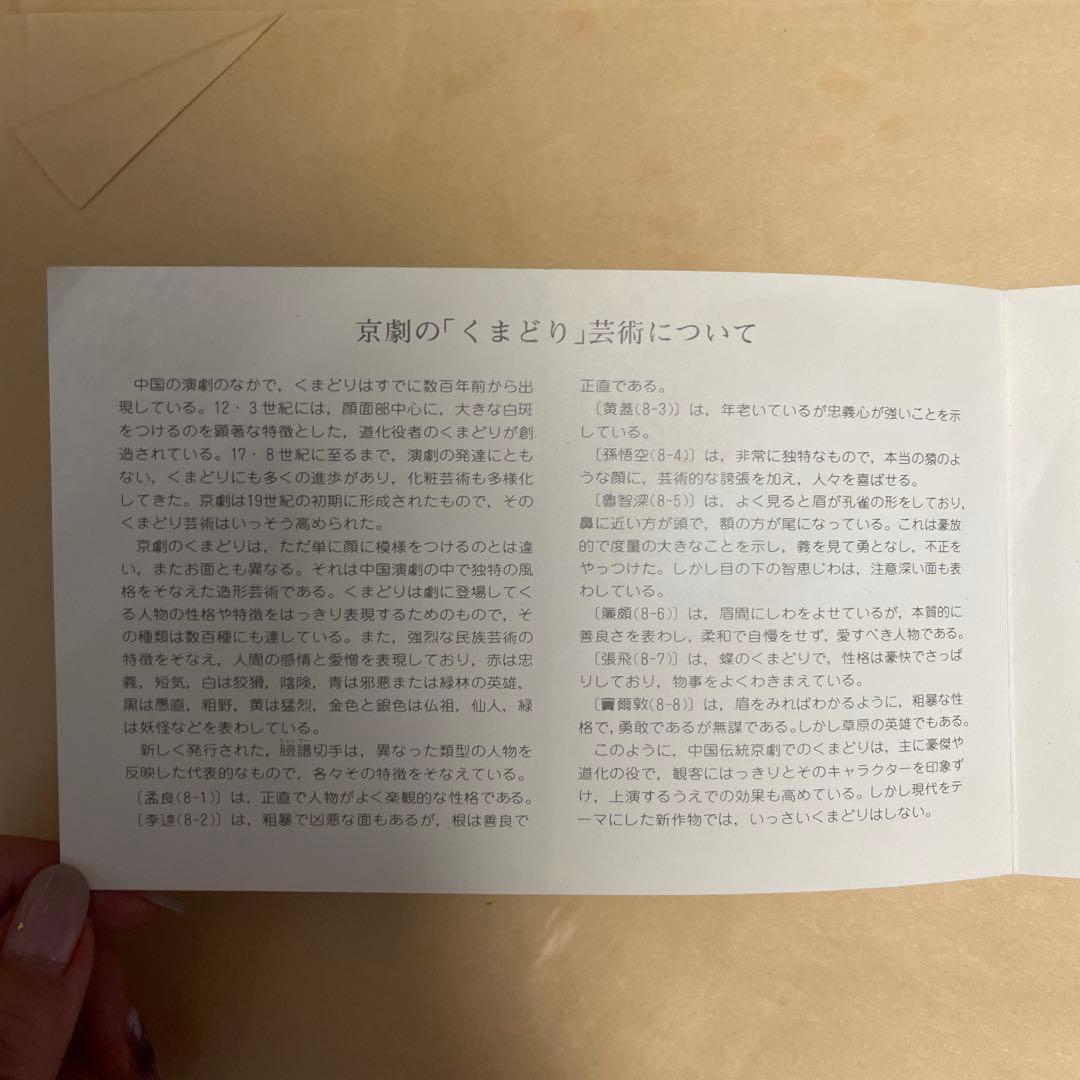 京劇の「くまどり」芸術について
中国の演劇のなかで，くまどりはすでに数百年前から出
現している。12・3世紀には，顔面部中心に，大きな白斑
をつけるのを顕著な特徴とした，道化役者のくまどりが創
造されている。17・8世紀に至るまで，演劇の発達にとも
ない，くまどりにも多くの進歩があり，化粧芸術も多様化
してきた。京劇は19世紀の初期に形成されたもので，その
くまどり芸術はいっそう高められた。
京劇のくまどりは，ただ単に顔に模様をつけるのとは違
い，またお面とも異なる。それは中国演劇の中で独特の風
格をそなえた造形芸術である。くまどりは劇に登場してく
る人物の性格や特徴をはっきり表現するためのもので，そ
の種類は数百種にも達している。また，強烈な民族芸術の
特徴をそなえ，人間の感情と愛憎を表現しており，赤は忠
義，短気，白は狡猾，陰険，青は邪悪または緑林の英雄，
黒は愚直，粗野，黄は猛烈，金色と銀色は仏祖，仙人，緑
は妖怪などを表わしている。
新しく発行された，臉譜切手は，異なった類型の人物を
反映した代表的なもので，各々その特徴をそなえている。
〔孟良(8-1)〕は，正直で人物がよく楽観的な性格である。
〔李逵(8-2)〕は，粗暴で凶悪な面もあるが，根は善良で
正直である。
〔黄蓋(8-3)〕は，年老いているが忠義心が強いことを示
している。
〔孫悟空(8-4)〕は，非常に独特なもので，本当の猿のよ
うな顔に，芸術的な誇張を加え，人々を喜ばせる。
〔魯智深(8-5)〕は，よく見ると眉が孔雀の形をしており，
鼻に近い方が頭で，額の方が尾になっている。これは豪放
的で度量の大きなことを示し，義を見て勇となし，不正を
やっつけた。しかし目の下の智恵じわは，注意深い面も表
わしている。
〔廉頗(8-6)〕は，眉間にしわをよせているが，本質的に
善良さを表わし，柔和で自慢をせず，愛すべき人物である。
〔張飛(8-7)〕は，蝶のくまどりで，性格は豪快でさっぱ
りしており，物事をよくわきまえている。
〔竇爾敦(8-8)〕は，眉をみればわかるように，粗暴な性
格で，勇敢であるが無謀である。しかし草原の英雄でもある。
このように，中国伝統京劇でのくまどりは，主に豪傑や
道化の役で，観客にはっきりとそのキャラクターを印象ず
け，上演するうえでの効果も高めている。しかし現代をテ
ーマにした新作物では，いっさいくまどりはしない。